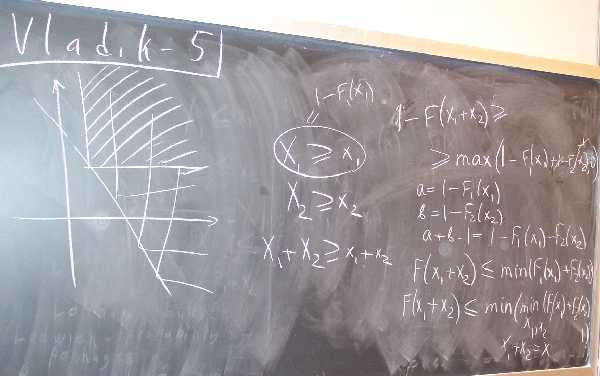 Vladik-5
1-F₁(x₁)
"
X₁ ≥ x₁
X₂ ≥ x₂
X₁+X₂ ≥ x₁+x₂
1-F(x₁+x₂) ≥
≥ max(1-F₁(x₁)+1-F₂(x₂)
a = 1-F₁(x₁)
b = 1-F₂(x₂)
a+b-1 = 1-F₁(x₁)-F₂(x₂)
F(x₁+x₂) ≤ min(F₁(x₁)+F₂(x₂)
F(x₁+x₂) ≤ min(min(F₁(x₁)+F₂(x₂)
x₁,x₂
x₁+x₂=x